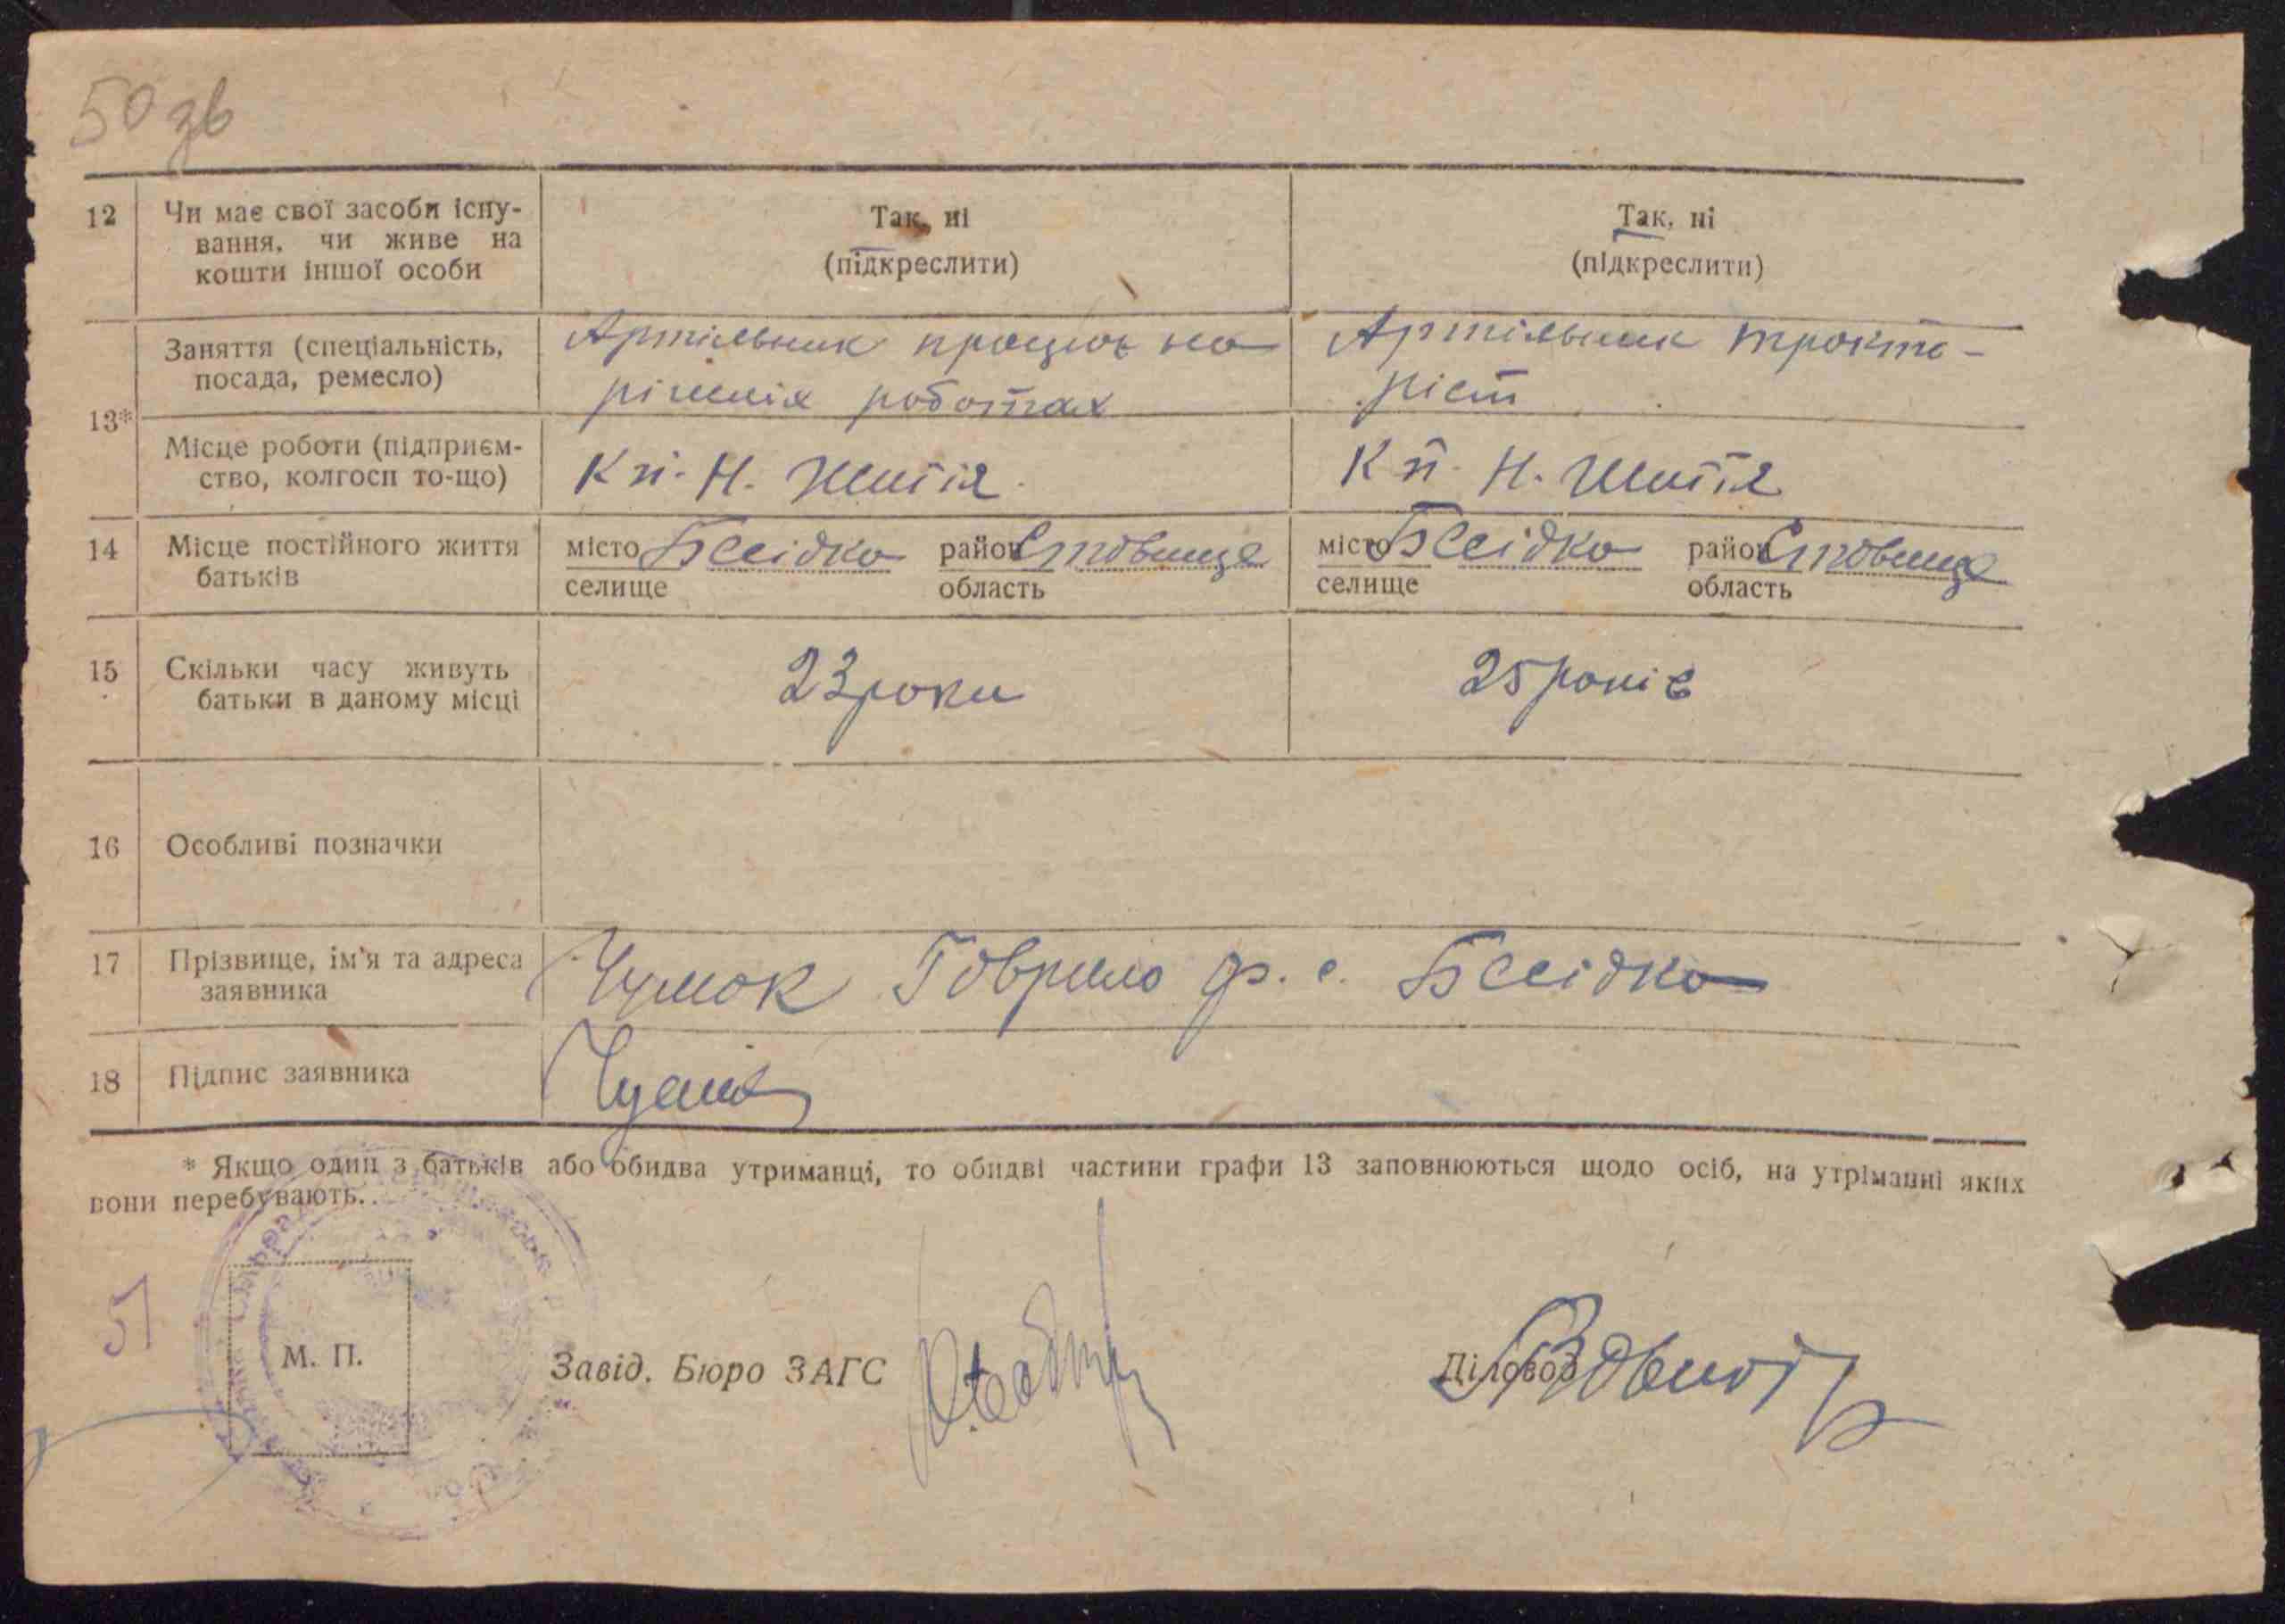 50 зв
12 Чи має свої засоби існу-
вання, чи живе на
кошти іншої особи
Так, ні
(підкреслити)
Так, ні
(підкреслити)
13*
Заняття (спеціальність,
посада, ремесло)
Артільник працює на
різних роботах
Артільник тракто-
ріст
Місце роботи (підприєм-
ство, колгосп то-що)
Кп. Н. Життя
Кп. Н. Життя
14 Місце постійного життя
батьків
місто Бесідка район Ставище
селище область
місто Бесідка район Ставище
селище область
15 Скільки часу живуть
батьки в даному місці
23 роки
25 років
16 Особливі позначки
17 Прізвище, ім'я та адреса
заявника
Чумак Гаврило Ф. с. Бесідка
18 Підпис заявника
* Якщо один з батьків або обидва утриманці, то обидві частини графи 13 заповнюються щодо осіб, на утріманні яких
вони перебувають.
51
М. П.
Завід. Бюро ЗАГС
Діловод